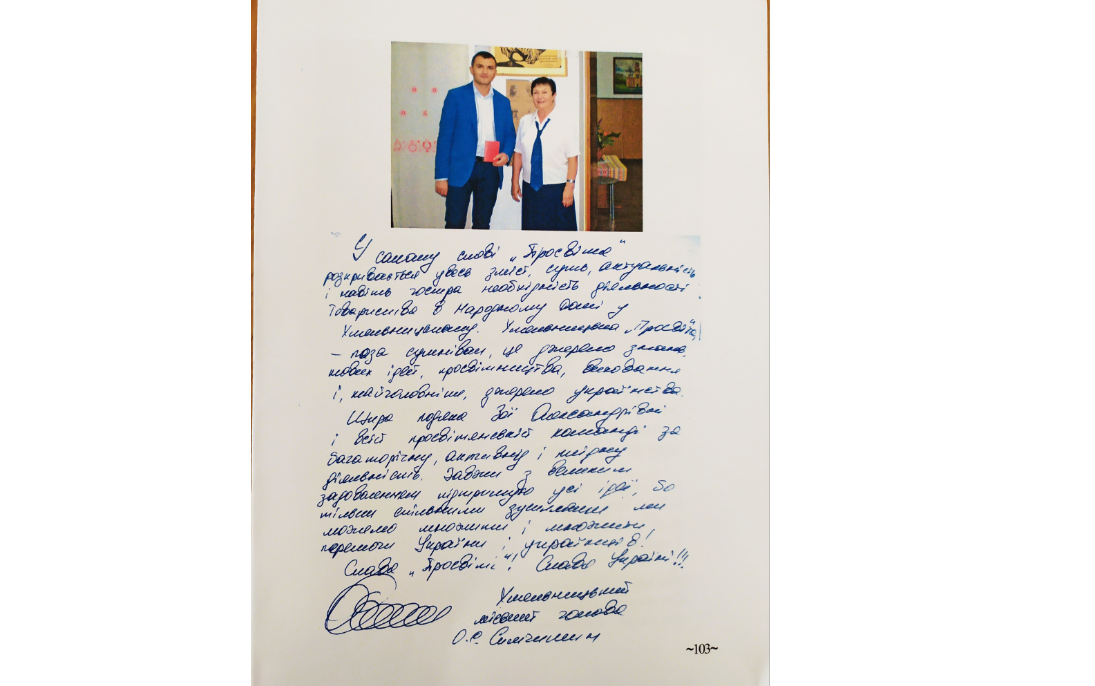 У самому слові „Просвіта"
розкривається увесь зміст, суть, актуальність
і навіть гостра необхідність діяльності
Товариства в Народному домі у
Хмельницькому. Хмельницька „Просвіта"
– поза сумнівом, це джерело знань,
нових ідей, просвітництва, виховання
і, найголовніше, джерело українства.
Щира подяка Зої Олександрівні
і всій просвітянській команді за
багаторічну, активну і щиру
діяльність. Завжди з великим
задоволенням підтримую усі ідеї, бо
тільки спільними зусиллями ми
можемо множити і множити
перемоги України і українців!
Слава „Просвіті"! Слава Україні!!!
Хмельницький
міський голова
О.С. Симчишин
~103~